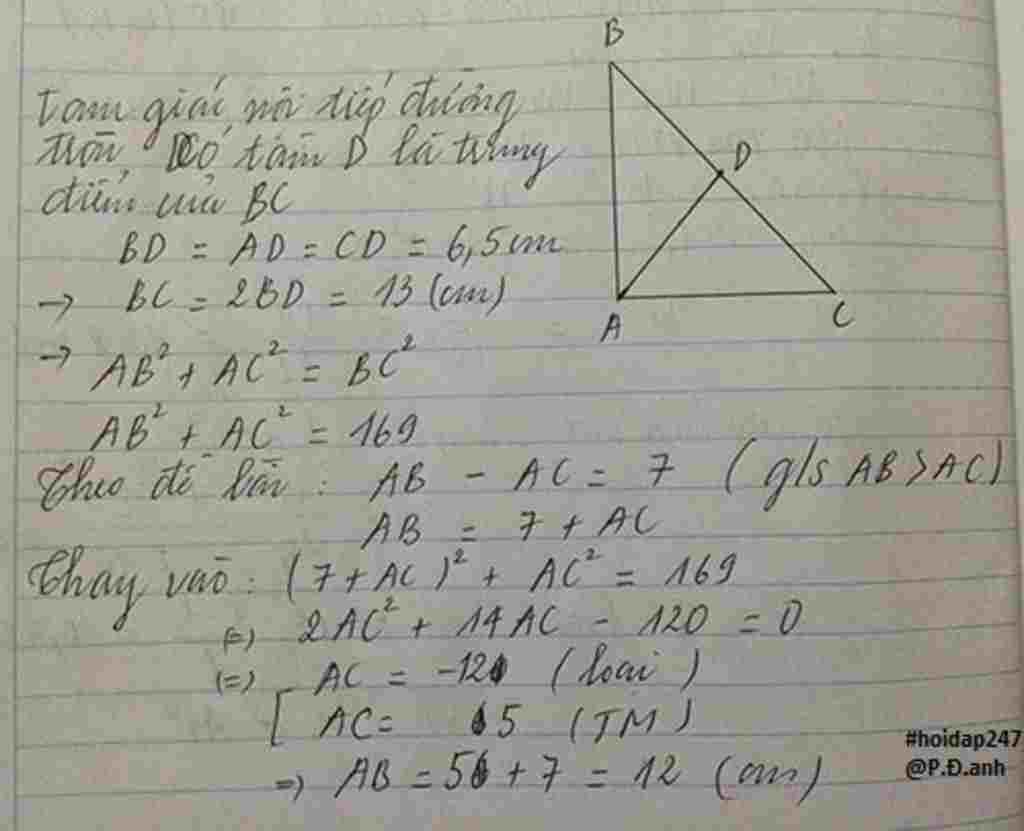 B
Tam giác nội tiếp đường
tròn, Có tâm D là trung
điểm của BC
D
BD = AD = CD = 6,5 cm
→ BC = 2BD = 13 (cm)
A
C
→ AB² + AC² = BC²
AB² + AC² = 169
Theo đề bài : AB - AC = 7 (g/s AB > AC)
AB = 7 + AC
Thay vào : (7 + AC)² + AC² = 169
(=) 2AC² + 14AC - 120 = 0
(=) [ AC = -12 (loại)
AC = 5 (TM)
=) AB = 5 + 7 = 12 (cm)
#hoidap247
@P.Đ.anh